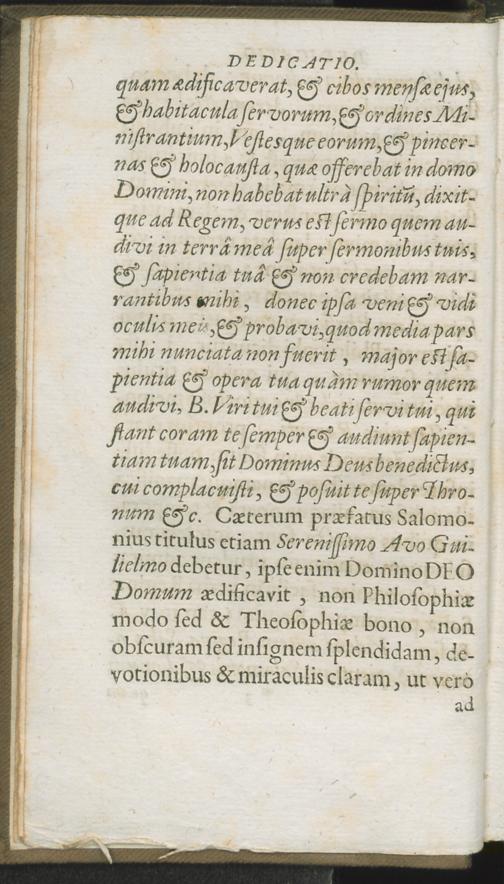 DEDICATIO.
quam ædificaverat, & cibos mensæ ejus,
& habitacula servorum, & ordines Mi-
nistrantium, Vestesque eorum, & pincer-
nas & holocausta, quæ offerebat in domo
Domini, non habebat ultrà spiritū, dixit-
que ad Regem, verus est sermo quem au-
divi in terrâ meâ super sermonibus tuis,
& sapientia tuâ & non credebam nar-
rantibus mihi, donec ipsa veni & vidi
oculis meis, & probavi, quod media pars
mihi nunciata non fuerit, major est sa-
pientia & opera tua quàm rumor quem
audivi, B. Viri tui & beati servi tui, qui
stant coram te semper & audiunt sapien-
tiam tuam, sit Dominus Deus benedictus,
cui complacuisti, & posuit te super Thro-
num &c. Cæterum præfatus Salomo-
nius titulus etiam Serenissimo Avo Gui-
lielmo debetur, ipse enim Domino DEO
Domum ædificavit, non Philosophiæ
modo sed & Theosophiæ bono, non
obscuram sed insignem splendidam, de-
votionibus & miraculis claram, ut verò
ad